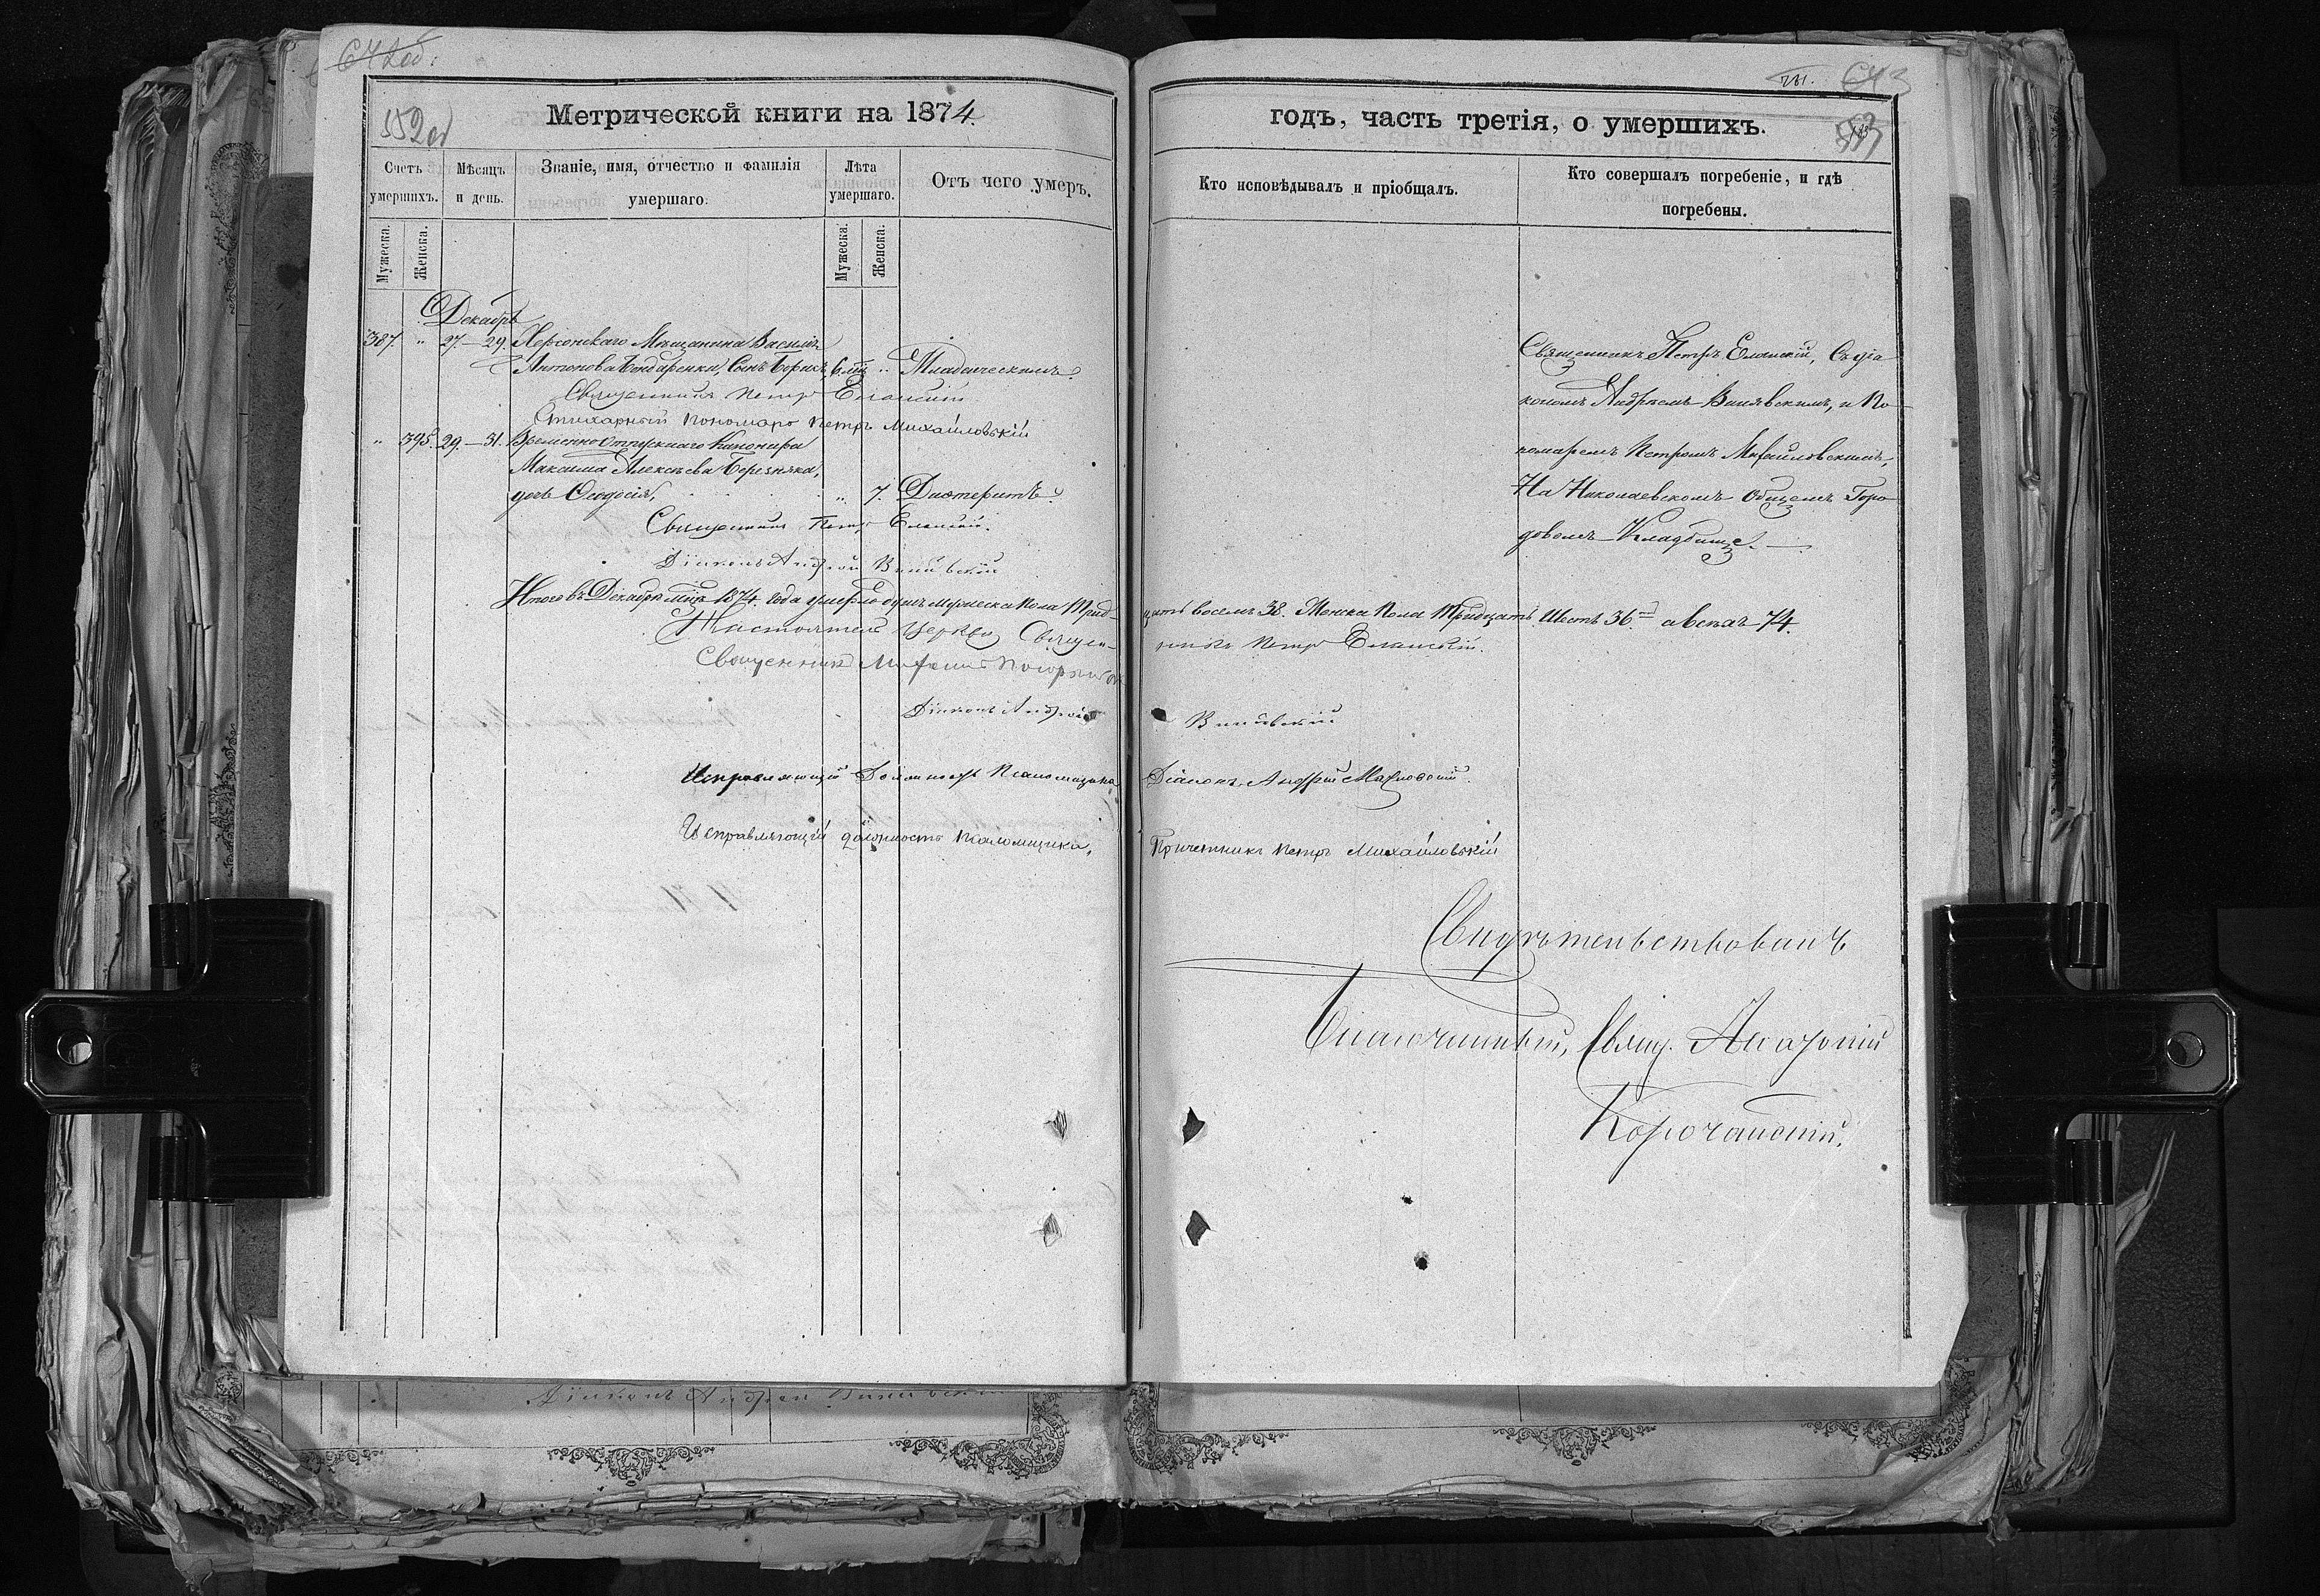 642 об:
552 об
Метрической книги на 1874.
Счетъ умершихъ.
Мѣсяцъ и день.
Званіе, имя, отчество и фамилія умершаго.
Лѣта умершаго.
Отъ чего умеръ.
Мужеска.
Женска.
Мужеска.
Женска.
Декабрь
387. " 27.—29. Херсонскаго Мѣщанина Василія
Антонова Бондаренки, Сынъ Борисъ, " Младенческимъ.
Священникъ Петръ Еланскій
Стихарный пономарь Петръ Михайловскій
" 395. 29.—31. Временно Отпускнаго Канонира
Максима Алексѣева Березняка,
дочь Ѳеодосія, " 7. Дифтеритъ.
Священникъ Петръ Еланскій.
Діаконъ Андрей
Итого въ Декабрѣ мцѣ 1874. года умерло душъ мужеска Пола Трид-
Настоятель Церкви Священ-
Священникъ
Діаконъ Андрей
Исправляющій Должность Псаломщика
Исправляющій должность псаломщика,
Діаконъ Андрей
781. 643
553
годъ, часть третія, о умершихъ.
Кто исповѣдывалъ и пріобщалъ.
Кто совершалъ погребеніе, и гдѣ погребены.
Священникъ Петръ Еланскій, Съ діа
кономъ Андреемъ и По-
номаремъ Петромъ Михайловскимъ,
На Николаевскомъ Общемъ Горо-
довомъ Кладбище.—
цать восемь 38. Женска Пола Тридцать Шесть 36. а всѣхъ 74.
никъ Петръ Еланскій.
Діаконъ Андрей
Причетникъ Петръ Михайловскій
Свидѣтельствовалъ
Благочинный, Свящ.
Корочанскій.